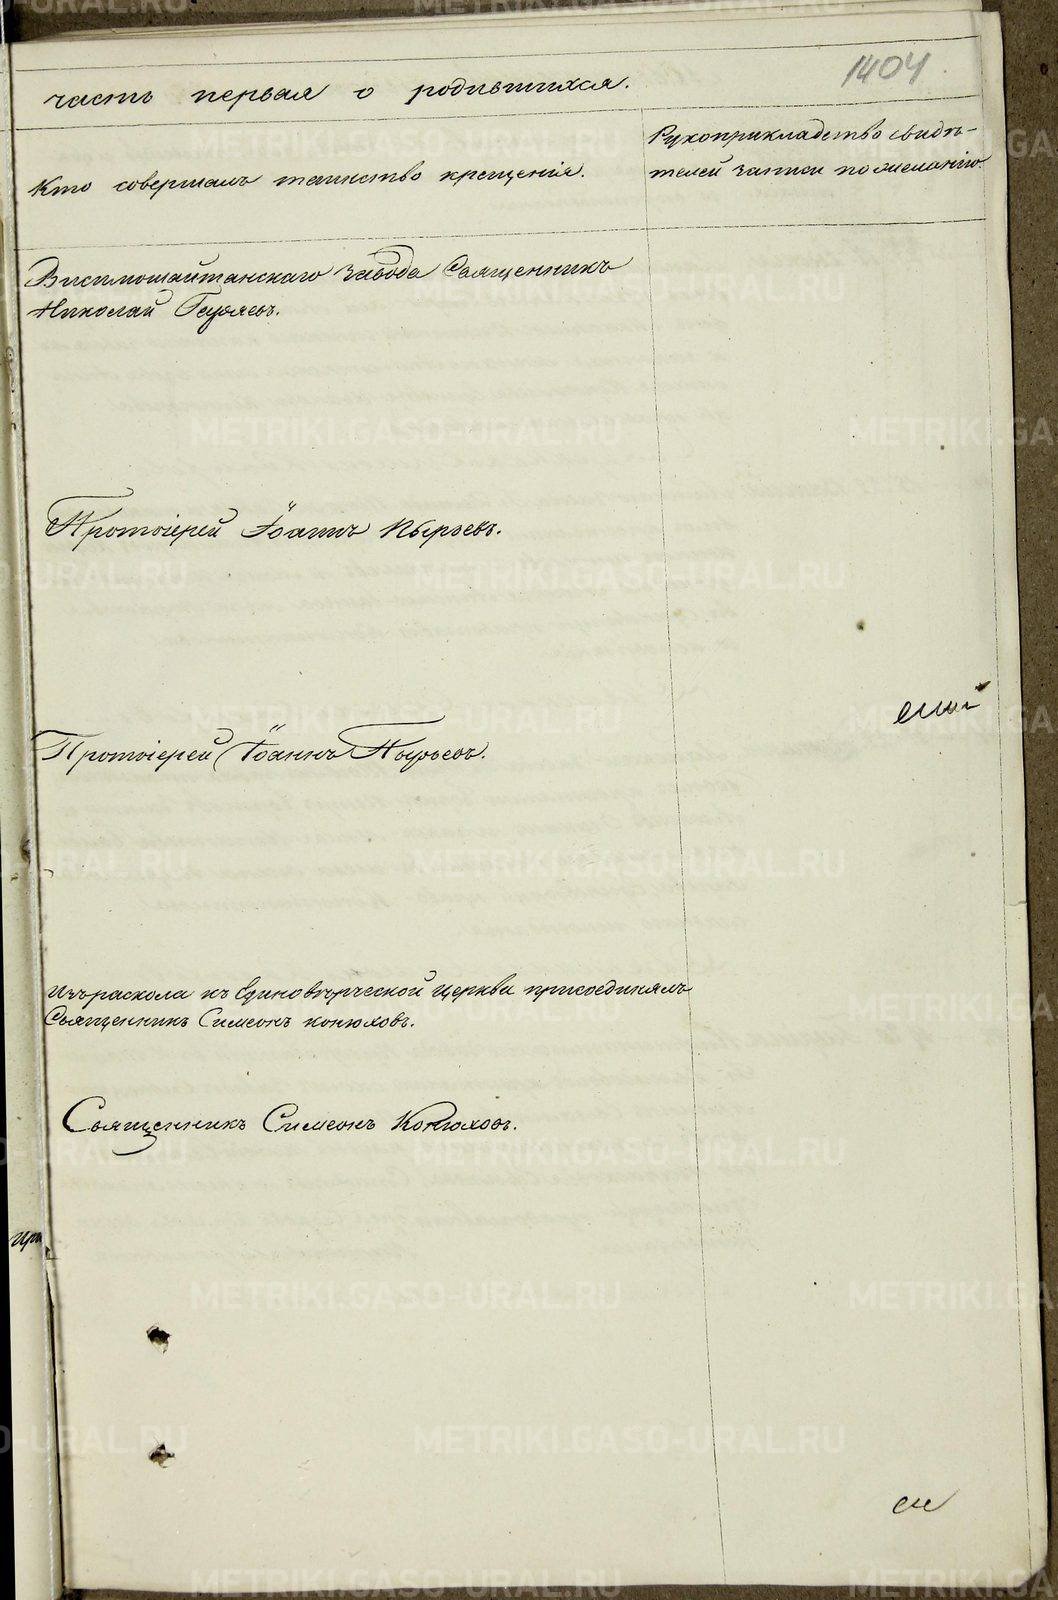 1404
часть первая о родившихся.
Кто совершалъ таинство крещенія.
Рукоприкладство свидѣ-
телей записи по желанію.
Висимошайтанскаго завода Священникъ
Николай
Протоіерей Іоаннъ Пырьевъ.
Протоіерей Іоаннъ Пырьевъ.
Изъ раскола къ Единовѣрческой церкви присоединялъ
Священникъ Симеонъ Конюховъ.
Священникъ Симеонъ Конюховъ.
METRIKI.GASO-URAL.RU